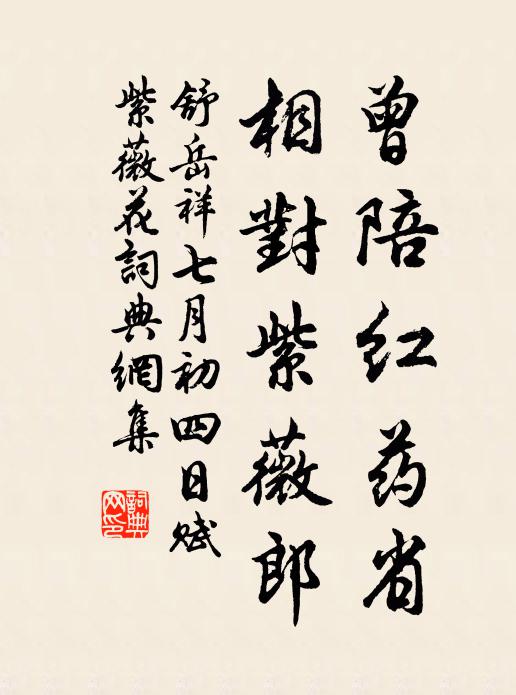 曾陪红药省
相對紫薇郎
舒岳祥七月初四日赋
紫薇花詞典網集
詞典网印